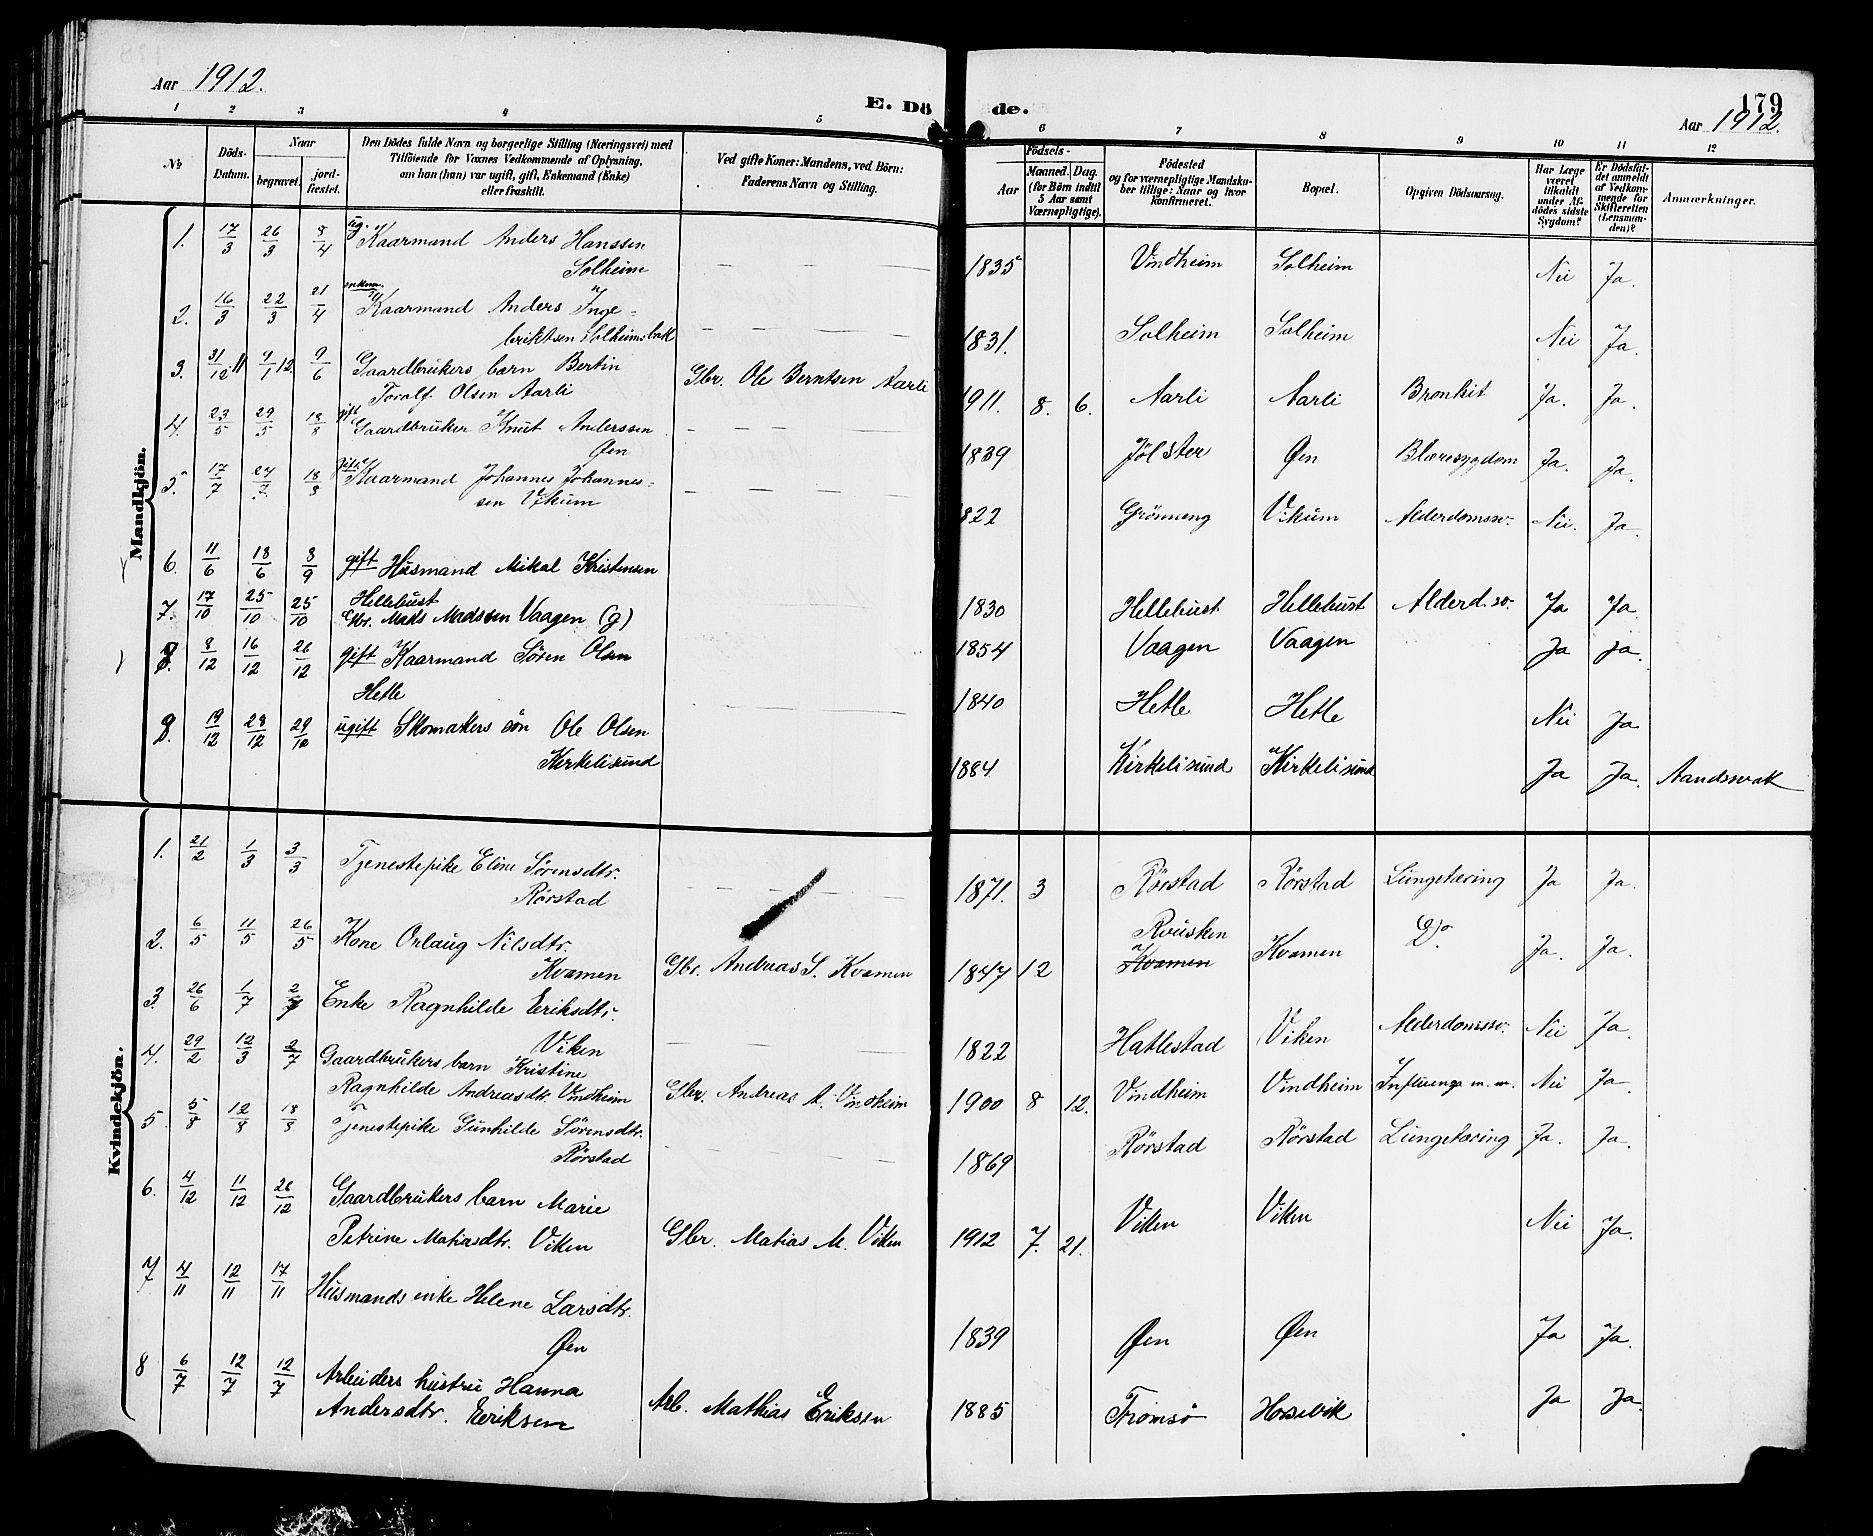 Aar 1912.
E. Dö de.
179
Aar 1912.
1 2 3 4 5 6 7 8 9 10 11 12
No
Döds-Datum.
Naar
begravet.
jord-fæstet.
Den Dödes fulde Navn og borgerlige Stilling (Næringsvei) med
Tilföiende for Voxnes Vedkommende af Oplysning,
om han (hun) var ugift, gift, Enkemand (Enke)
eller fraskilt.
Ved gifte Koner: Mandens, ved Börn:
Faderens Navn og Stilling.
Födsels-
Aar
Maaned. Dag.
(for Börn indtil
5 Aar samt
Værnepligtige).
Födested
og for værnepligtige Mandska-
ber tillige: Naar og hvor
konfirmeret.
Bopæl.
Opgiven Dödsaarsag.
Har Læge
været
tilkaldt
under Af-
dödes sidste
Sygdom?
Er Dödsfal-
det anmeldt
af Vedkom-
mende for
Skifteretten
(Lensman-
den)?
Anmærkninger.
Mandkjön.
1. 17/3 26/3 8/4 ug. Kaarmand Anders Hanssen
Solheim 1835 Vindheim Solheim Nei Ja.
2. 16/3 22/3 21/4 enkem. Kaarmand Anders Inge-
briktsen Solheimsbak 1831. Solheim Solheim Nei Ja.
3. 31/12 11 9/1 12 9/6 Gaardbrukers barn Bertin
Torolf Olsen Aarli Gbr. Ole Berntsen Aarli 1911. 8. 6. Aarli Aarli Bronkit Ja. Ja.
4. 23/5 29/5 18/8 gift Gaardbruker Knut Anderssen
Øen 1839 Jölster Øen Blæresygdom Ja. Ja.
5. 17/7 24/7 18/8 gift Kaarmand Johannes Johannes-
sen Vikum 1822 Grönneng Vikum Alderdomssv. Nei. Ja.
6. 11/6 18/6 8/9 gift Husmand Mikal Kristensen
Hellebust 1830 Hellebust Hellebust Alderd.sv. Ja Ja.
7. 17/10 25/10 25/10 Gbr. Mads Madssen Vaagen (g) 1854 Vaagen Vaagen Ja ja.
8. 8/12 16/12 26/12 gift Kaarmand Sören Olsen
Hetle 1840 Hetle Hetle Nei Ja
9. 19/12 28/12 29/12 ugift Skomakers sön Ole Olsen
Kirkelisund 1884 Kirkelisund Kirkelisund Ja Ja. Aandssvak
Kvindekjön.
1. 21/2 1/3 3/3 Tjenestepike Eline Sörensdtr.
Rörstad 1871. 3 Rörstad Rörstad Lungetæring Ja Ja.
2. 6/5 11/5 26/5 Kone Orlaug Nilsdtr.
Kvamen Gbr. Andreas S. Kvamen 1847 12 Kvamen Kvamen Do. Ja. Ja.
3 26/6 1/7 2/7 Enke Ragnhilde Eeriksdtr.
Viken 1822 Hatlestad Viken Alderdomssv. Nei Ja.
4. 29/2 12/3 2/7 Gaardbrukers barn Kristine
Ragnhilde Andreasdtr. Vindheim Gbr. Andreas A. Vindheim 1900 8 12. Vindheim Vindheim Influenza m.m. Nei Ja.
5. 5/8 12/8 18/8 Tjenestepike Gunhilde Sörensdtr.
Rörstad 1869 Rörstad Rörstad Lungetæring Ja. Ja.
6. 4/12 11/12 26/12 Gaardbrukers barn Marie
Petrine Matiasdtr. Viken Gbr. Matias M. Viken 1912 7. 21. Viken Viken Nei Ja.
7 4/11 12/11 17/11 Husmands enke Helene Larsdtr.
Øen 1839 Øen Øen Ja Ja.
8 6/7 12/7 12/7 Arbeiders hustru Hanna
Andersdtr. Eeriksen Arb. Mathias Eriksen 1885 Tromsö Horsevik Ja Ja.